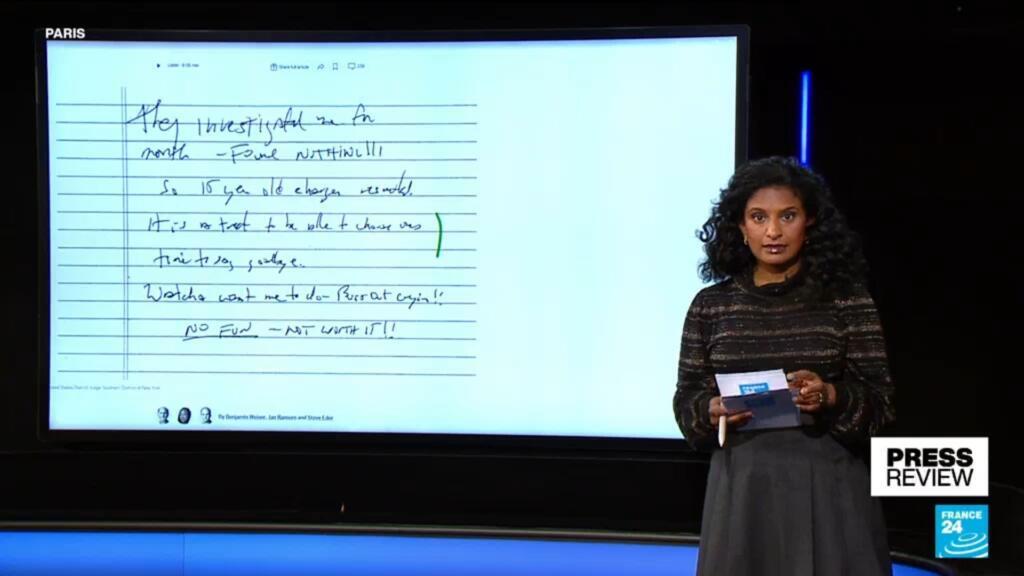 PARIS
Share full article
They investigated me for
month - Found NOTHING!!!
So 15 year old charges resulted.
It is treat to be able to choose ones
time to say goodbye.
Watcha want me to do - Burst out cryin!!
NO FUN - NOT WORTH IT!!
States District Judge Southern District of New York
By Benjamin Weiser, Jan Ransom and Steve Eder
FRANCE
24
PRESS
REVIEW
FRANCE
24